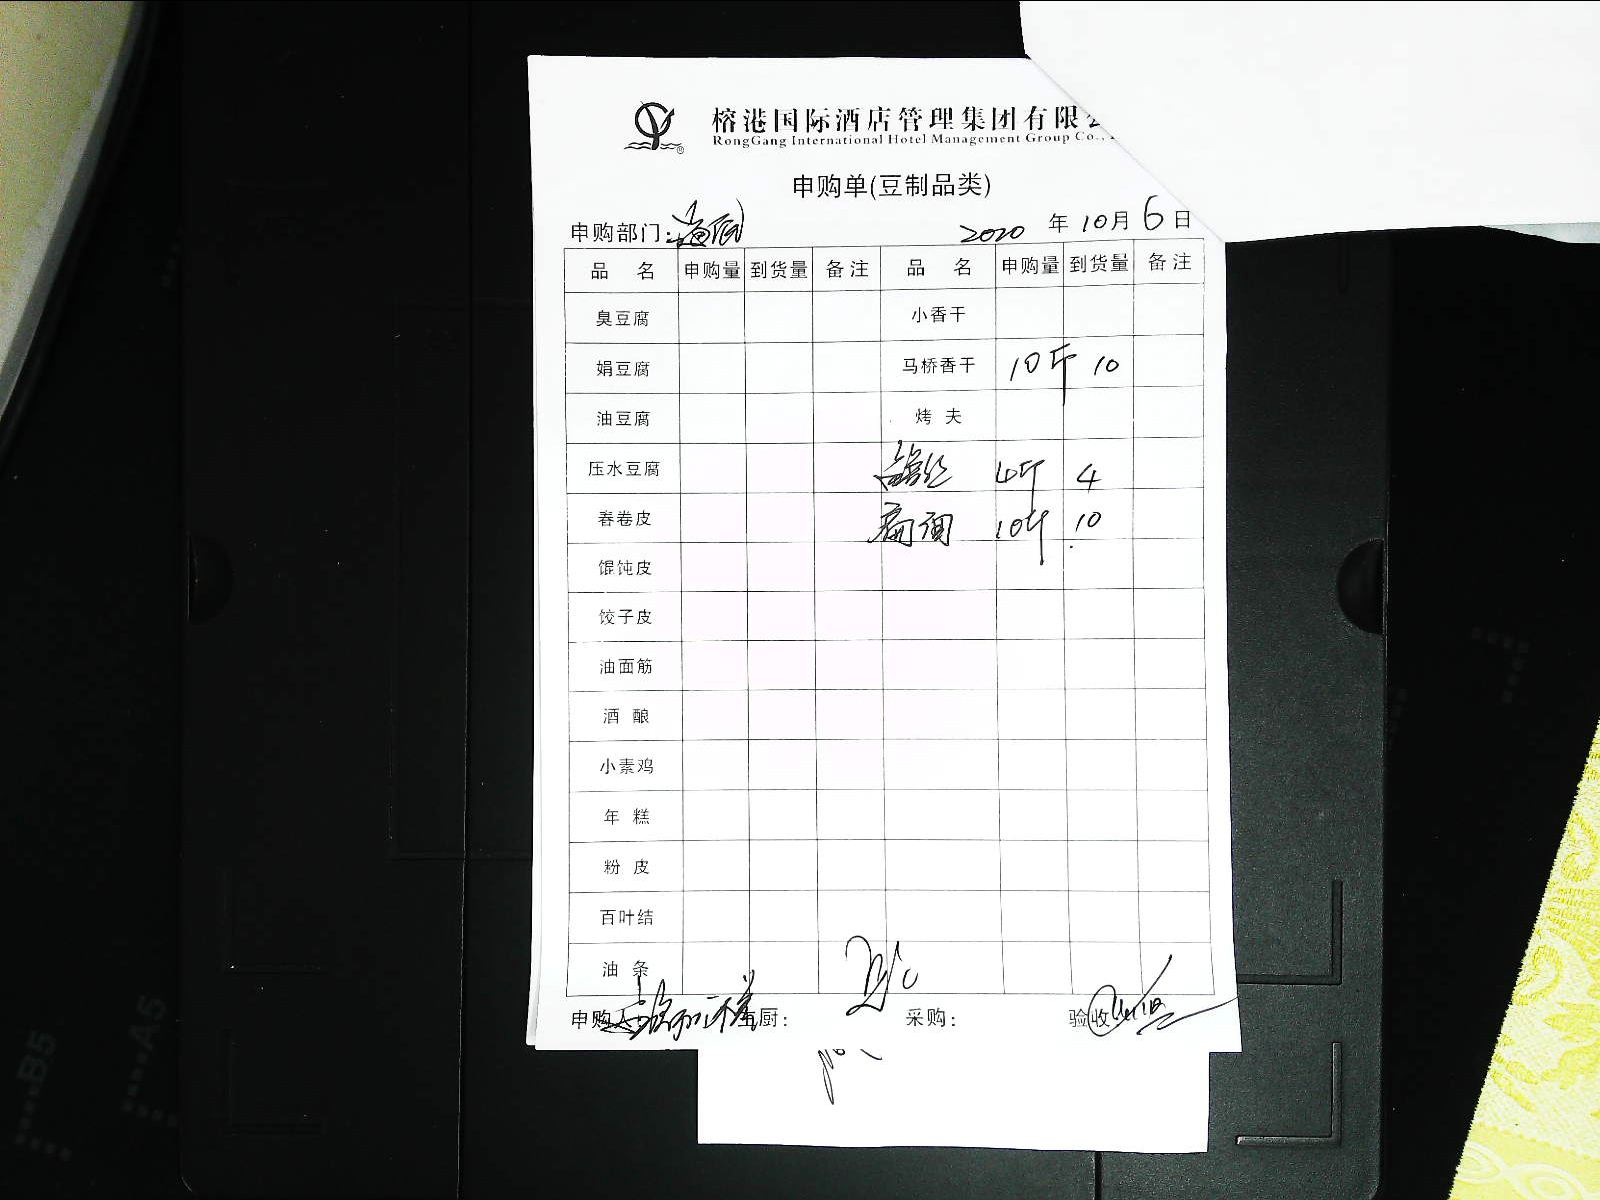 榕港国际酒店管理集团有限
RongGang International Hotel Management Group Co.,
申购单(豆制品类)
申购部门: 2020 年 10月 6 日
品 名 申购量 到货量 备注 品 名 申购量 到货量 备注
臭豆腐 小香干
娟豆腐 马桥香干 10斤 10
油豆腐 烤 夫
压水豆腐 4斤 4
春卷皮 10斤 10
馄饨皮
饺子皮
油面筋
酒 酿
小素鸡
年 糕
粉 皮
百叶结
油 条
申购人: 厨: 采购: 验收
B5
A5